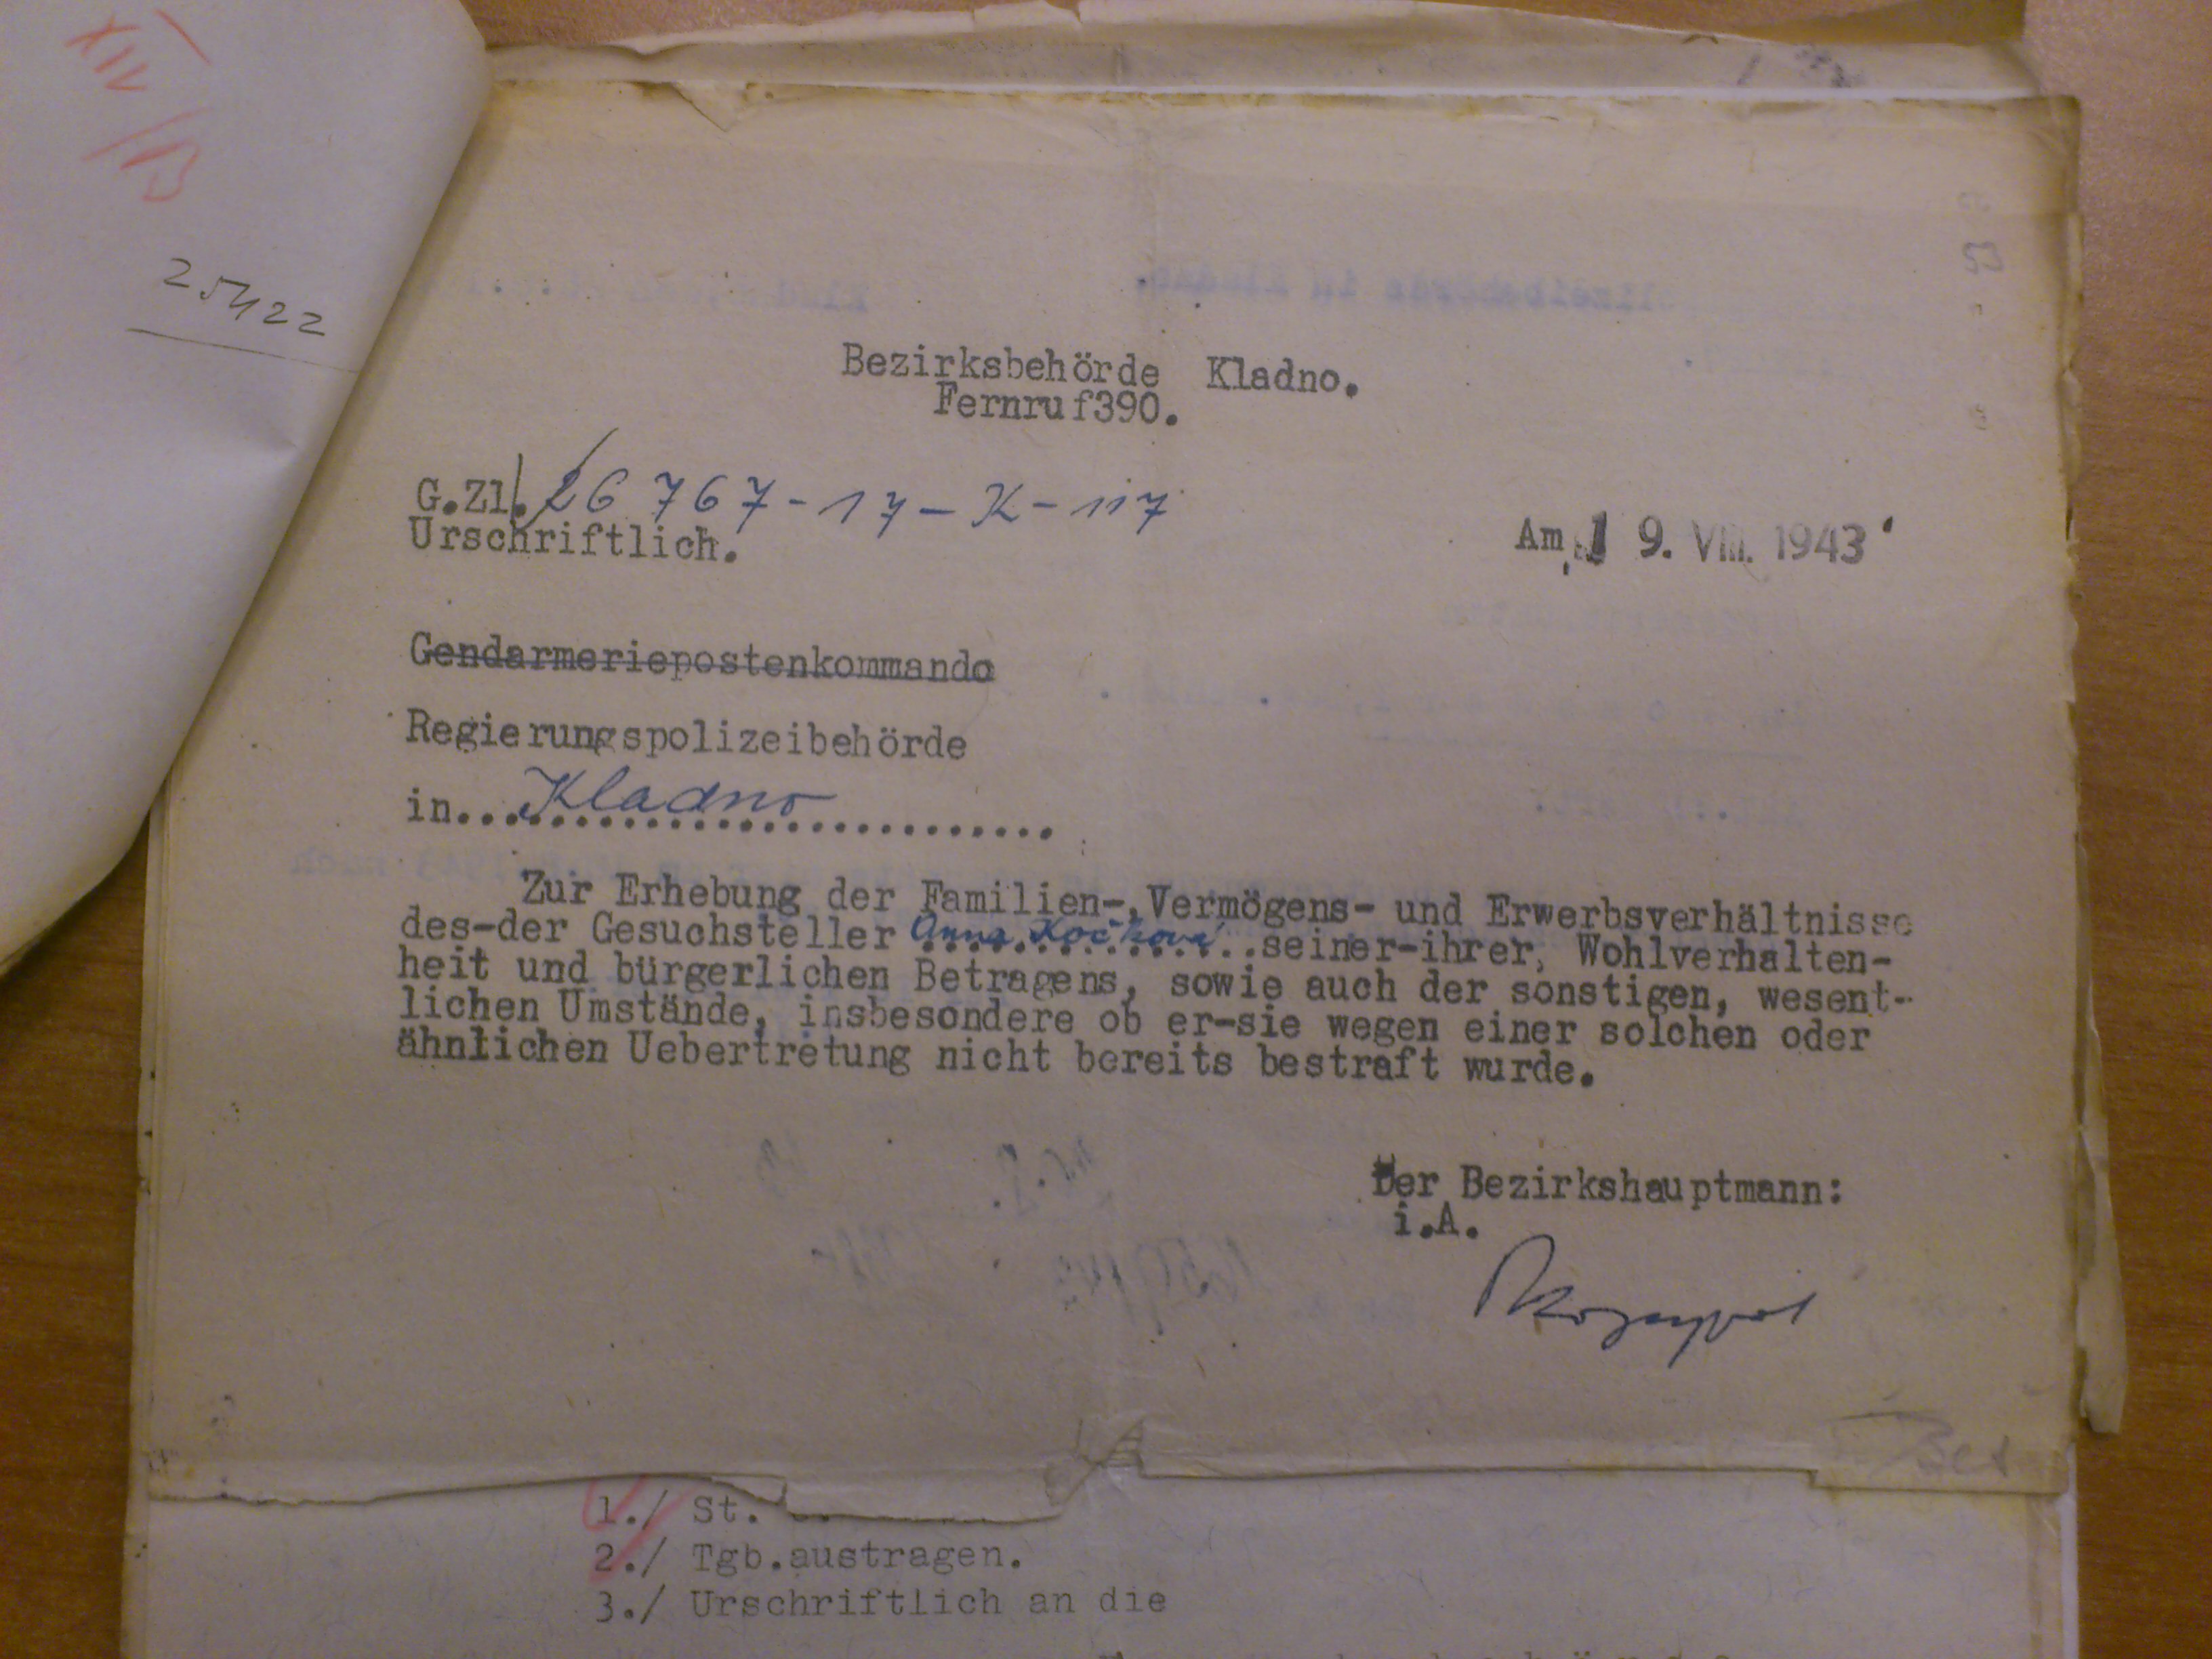 XIV/13
25422
Bezirksbehörde Kladno.
Fernruf390.
G.Zl. 26 767-17-K-117
Urschriftlich.
Am 19. VIII. 1943
Gendarmeriepostenkommando
Regierungspolizeibehörde
in...Kladno...........................
Zur Erhebung der Familien-,Vermögens- und Erwerbsverhältnisse
des-der Gesuchsteller Anna Kočková ..seiner-ihrer, Wohlverhalten-
heit und bürgerlichen Betragens, sowie auch der sonstigen, wesent-
lichen Umstände, insbesondere ob er-sie wegen einer solchen oder
ähnlichen Uebertretung nicht bereits bestraft wurde.
Der Bezirkshauptmann:
i.A.
1./ St.
2./ Tgb.austragen.
3./ Urschriftlich an die